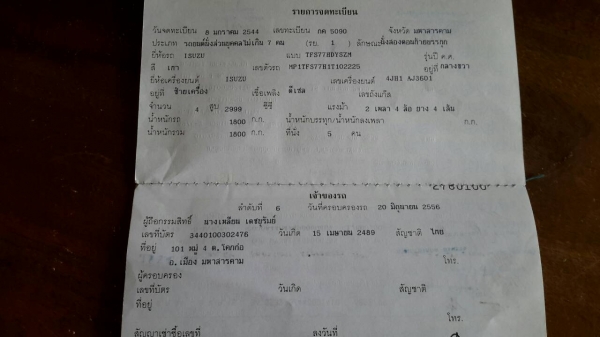 รายการจดทะเบียน
วันจดทะเบียน 8 มกราคม 2544 เลขทะเบียน กค 5090 จังหวัด มหาสารคาม
ประเภท รถยนต์นั่งส่วนบุคคลไม่เกิน 7 คน (รย. 1 ) ลักษณะ นั่งสองตอนท้ายบรรทุก
ยี่ห้อรถ ISUZU แบบ TFS77HDYSZM รุ่นปี ค.ศ.
สี เทา เลขตัวรถ MP1TFS77H1T102225 อยู่ที่ กลางขวา
ยี่ห้อเครื่องยนต์ ISUZU เลขเครื่องยนต์ 4JH1 AJ3601
อยู่ที่ ซ้ายเครื่อง เชื้อเพลิง ดีเซล เลขถังแก๊ส
จำนวน 4 สูบ 2999 ซีซี แรงม้า 2 เพลา 4 ล้อ ยาง 4 เส้น
น้ำหนักรถ 1800 ก.ก. น้ำหนักบรรทุก/น้ำหนักลงเพลา ก.ก.
น้ำหนักรวม 1800 ก.ก. ที่นั่ง 5 คน
เจ้าของรถ
ลำดับที่ 6 วันที่ครอบครองรถ 20 มิถุนายน 2556
ผู้ถือกรรมสิทธิ์ นางเหลียน เดชบุรัมย์
เลขที่บัตร 3440100302476 วันเกิด 15 เมษายน 2489 สัญชาติ ไทย
ที่อยู่ 101 หมู่ 4 ต.โคกก่อ
อ.เมือง มหาสารคาม โทร.
ผู้ครอบครอง
เลขที่บัตร วันเกิด สัญชาติ
ที่อยู่
โทร.
สัญญาเช่าซื้อเลขที่ ลงวันที่